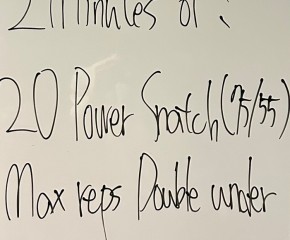 2 Minutes of :
20 Power Snatch (75/55)
Max reps Double under